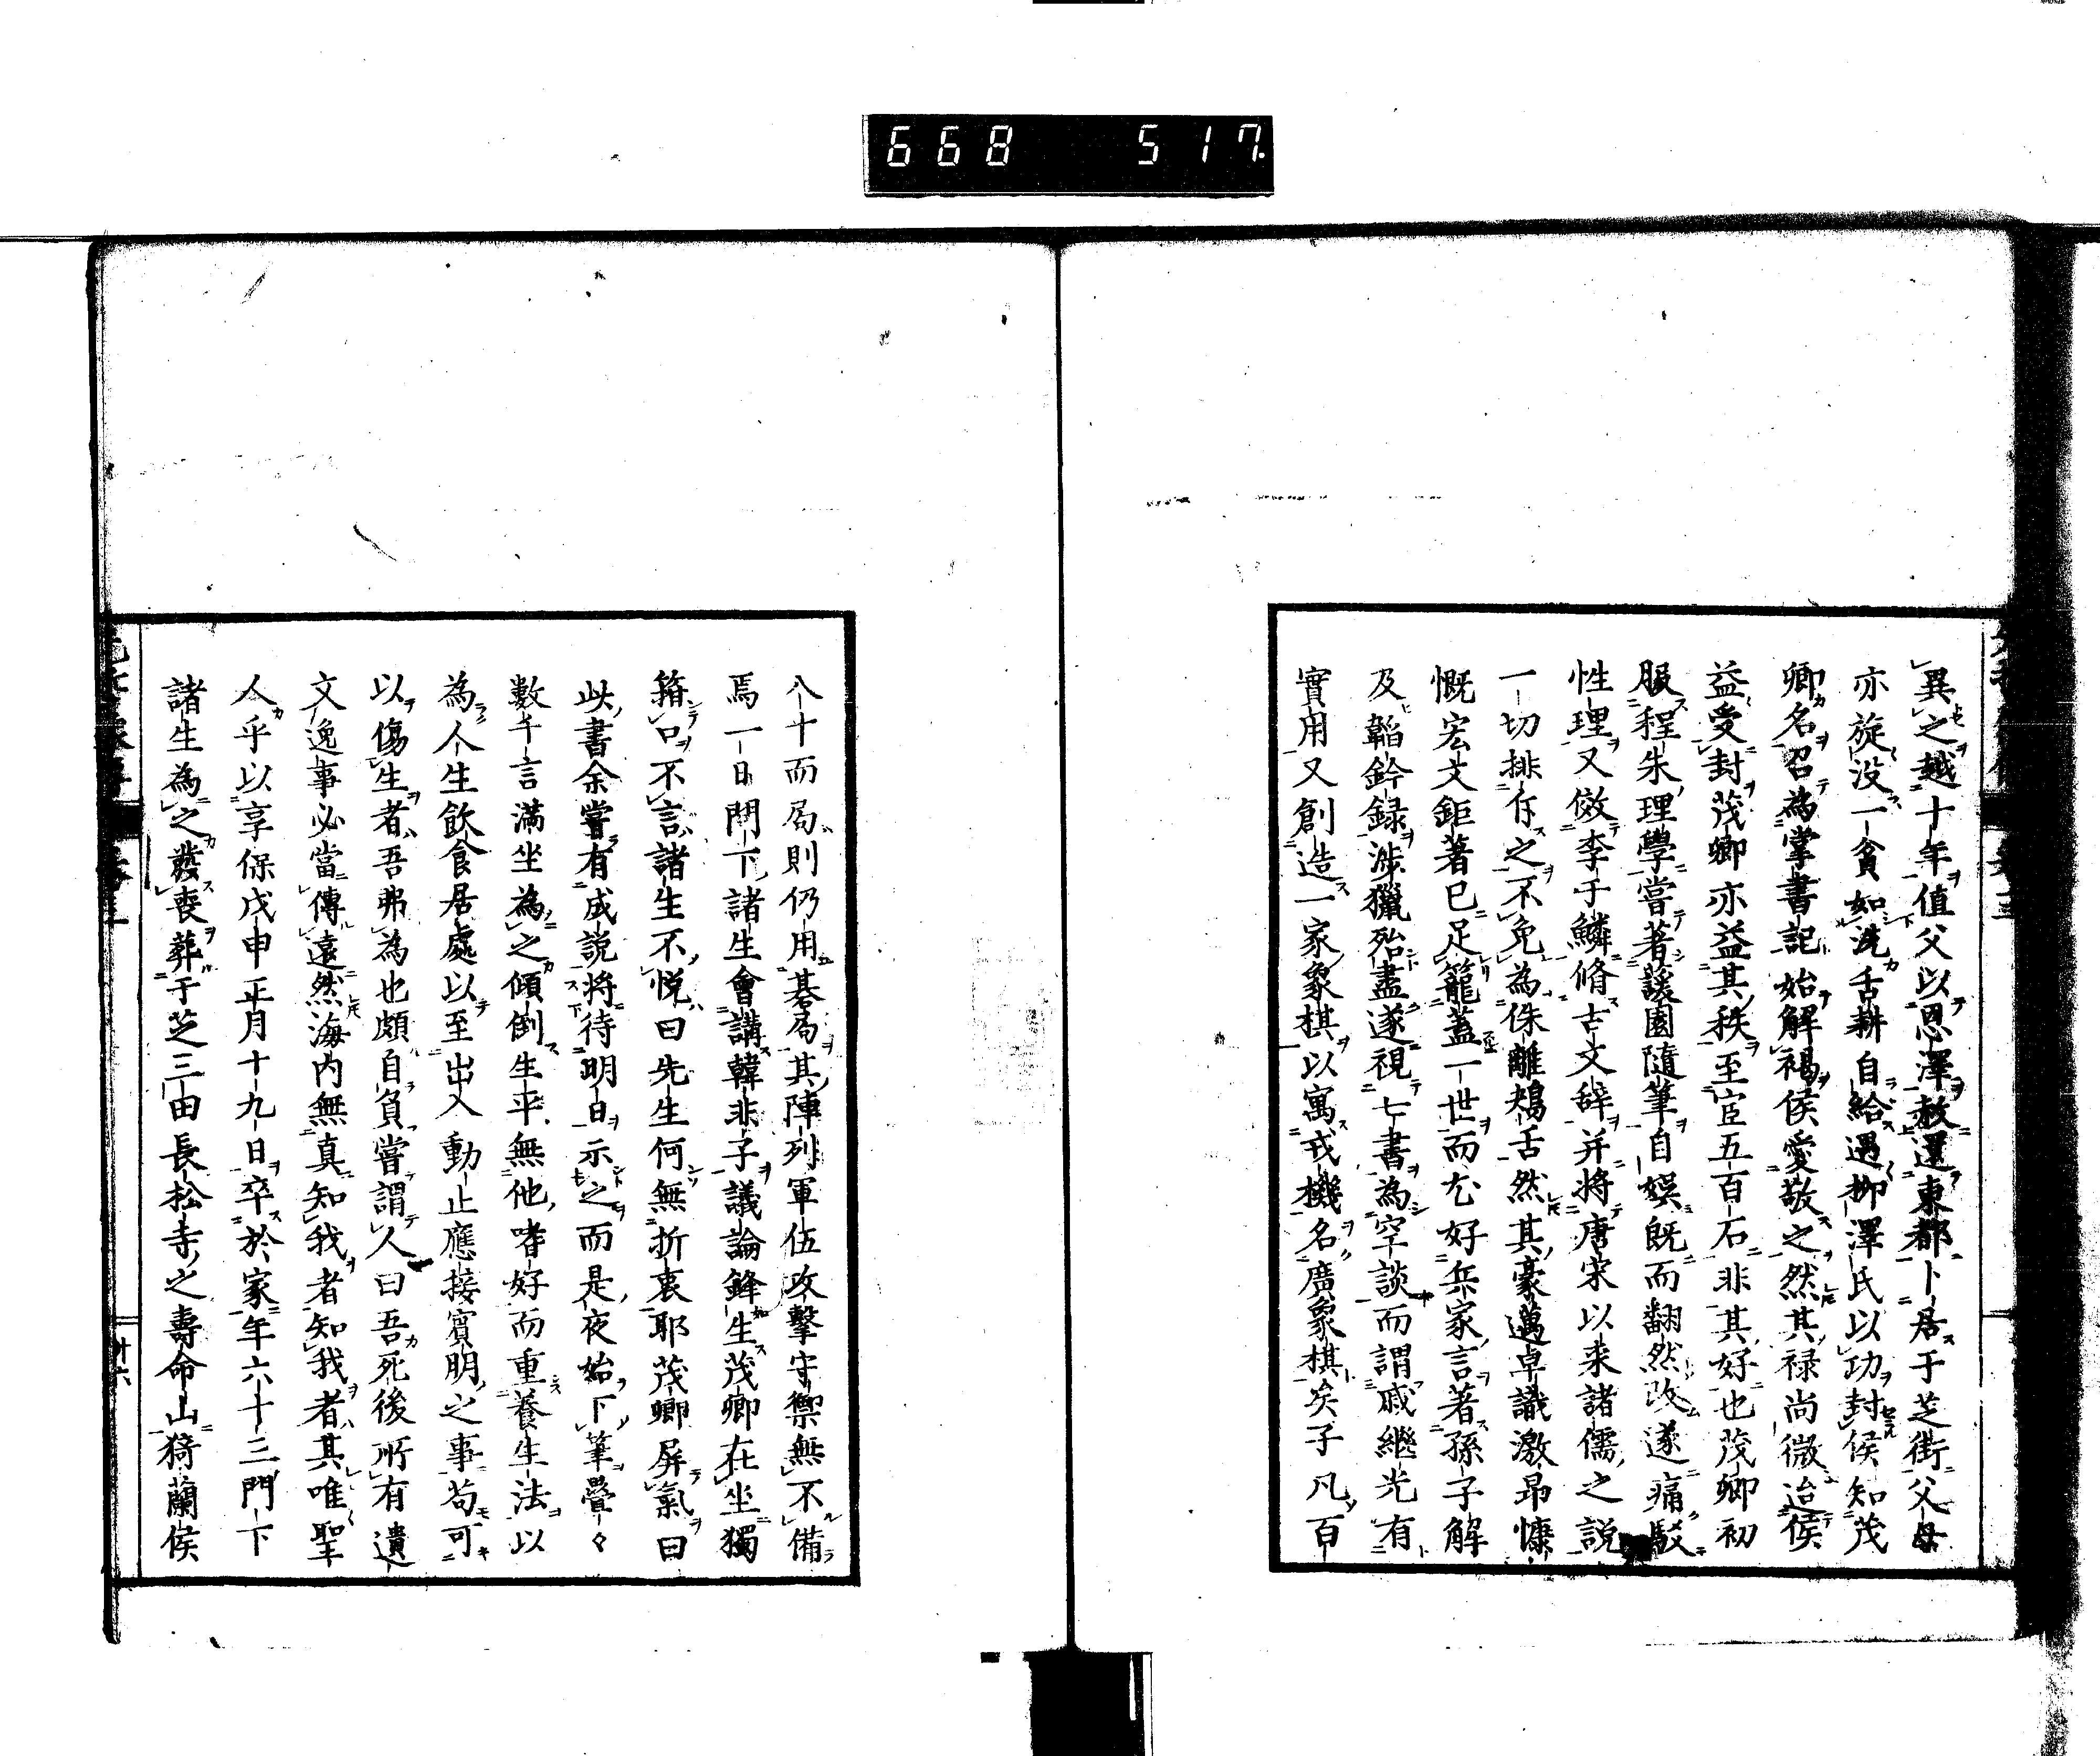 668 517
異之越十年值父以恩澤赦還東都卜居于芝街父母
亦旋没一貧如洗舌耕自給遇柳澤氏以功封侯知茂
卿名召為掌書記始解褐侯愛敬之然其禄尚微迨侯
益受封茂卿亦益其秩至宦五百石非其好也茂卿初
服程朱理學嘗著蘐園隨筆自娯既而翻然改遂痛駁
性理又倣李于鱗脩古文辞并將唐宋以来諸儒之説
一切排斥之不免為侏離鴂舌然其豪邁卓識激昂慷
慨宏文鉅著已足籠蓋一世而尤好兵家言著孫子解
及韜鈐録渉獵殆盡遂視七書為空談而謂戚繼光有
實用又創造一家象棋以寓戎機名廣象棋矣子凡百
八十而局則仍用碁局其陣列軍伍攻擊守禦無不備
焉一日門下諸生會講韓非子議論鋒生茂卿在坐獨
箝口不言諸生不悦曰先生何無折衷耶茂卿屏氣曰
此書余嘗有成説將待明日示之而是夜始下筆亹々
數千言滿坐為之傾倒生平無他嗜好而重養生法以
為人生飲食居處以至出入動止應接賓朋之事苟可
以傷生者吾弗為也頗自負嘗謂人曰吾死後所有遺
文逸事必當傳遠然海内無真知我者知我者其唯聖
人乎以享保戊申正月十九日卒於家年六十三門下
諸生為之發喪葬于芝三田長松寺之壽命山猗蘭侯
卅六